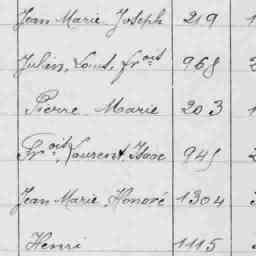 Jean Marie Joseph 219 1
Julien, Louis, Froit 968
Pierre Marie 203 1
Froit, Laurent Isaac 945
Jean Marie Honoré 1304
Henri 1115